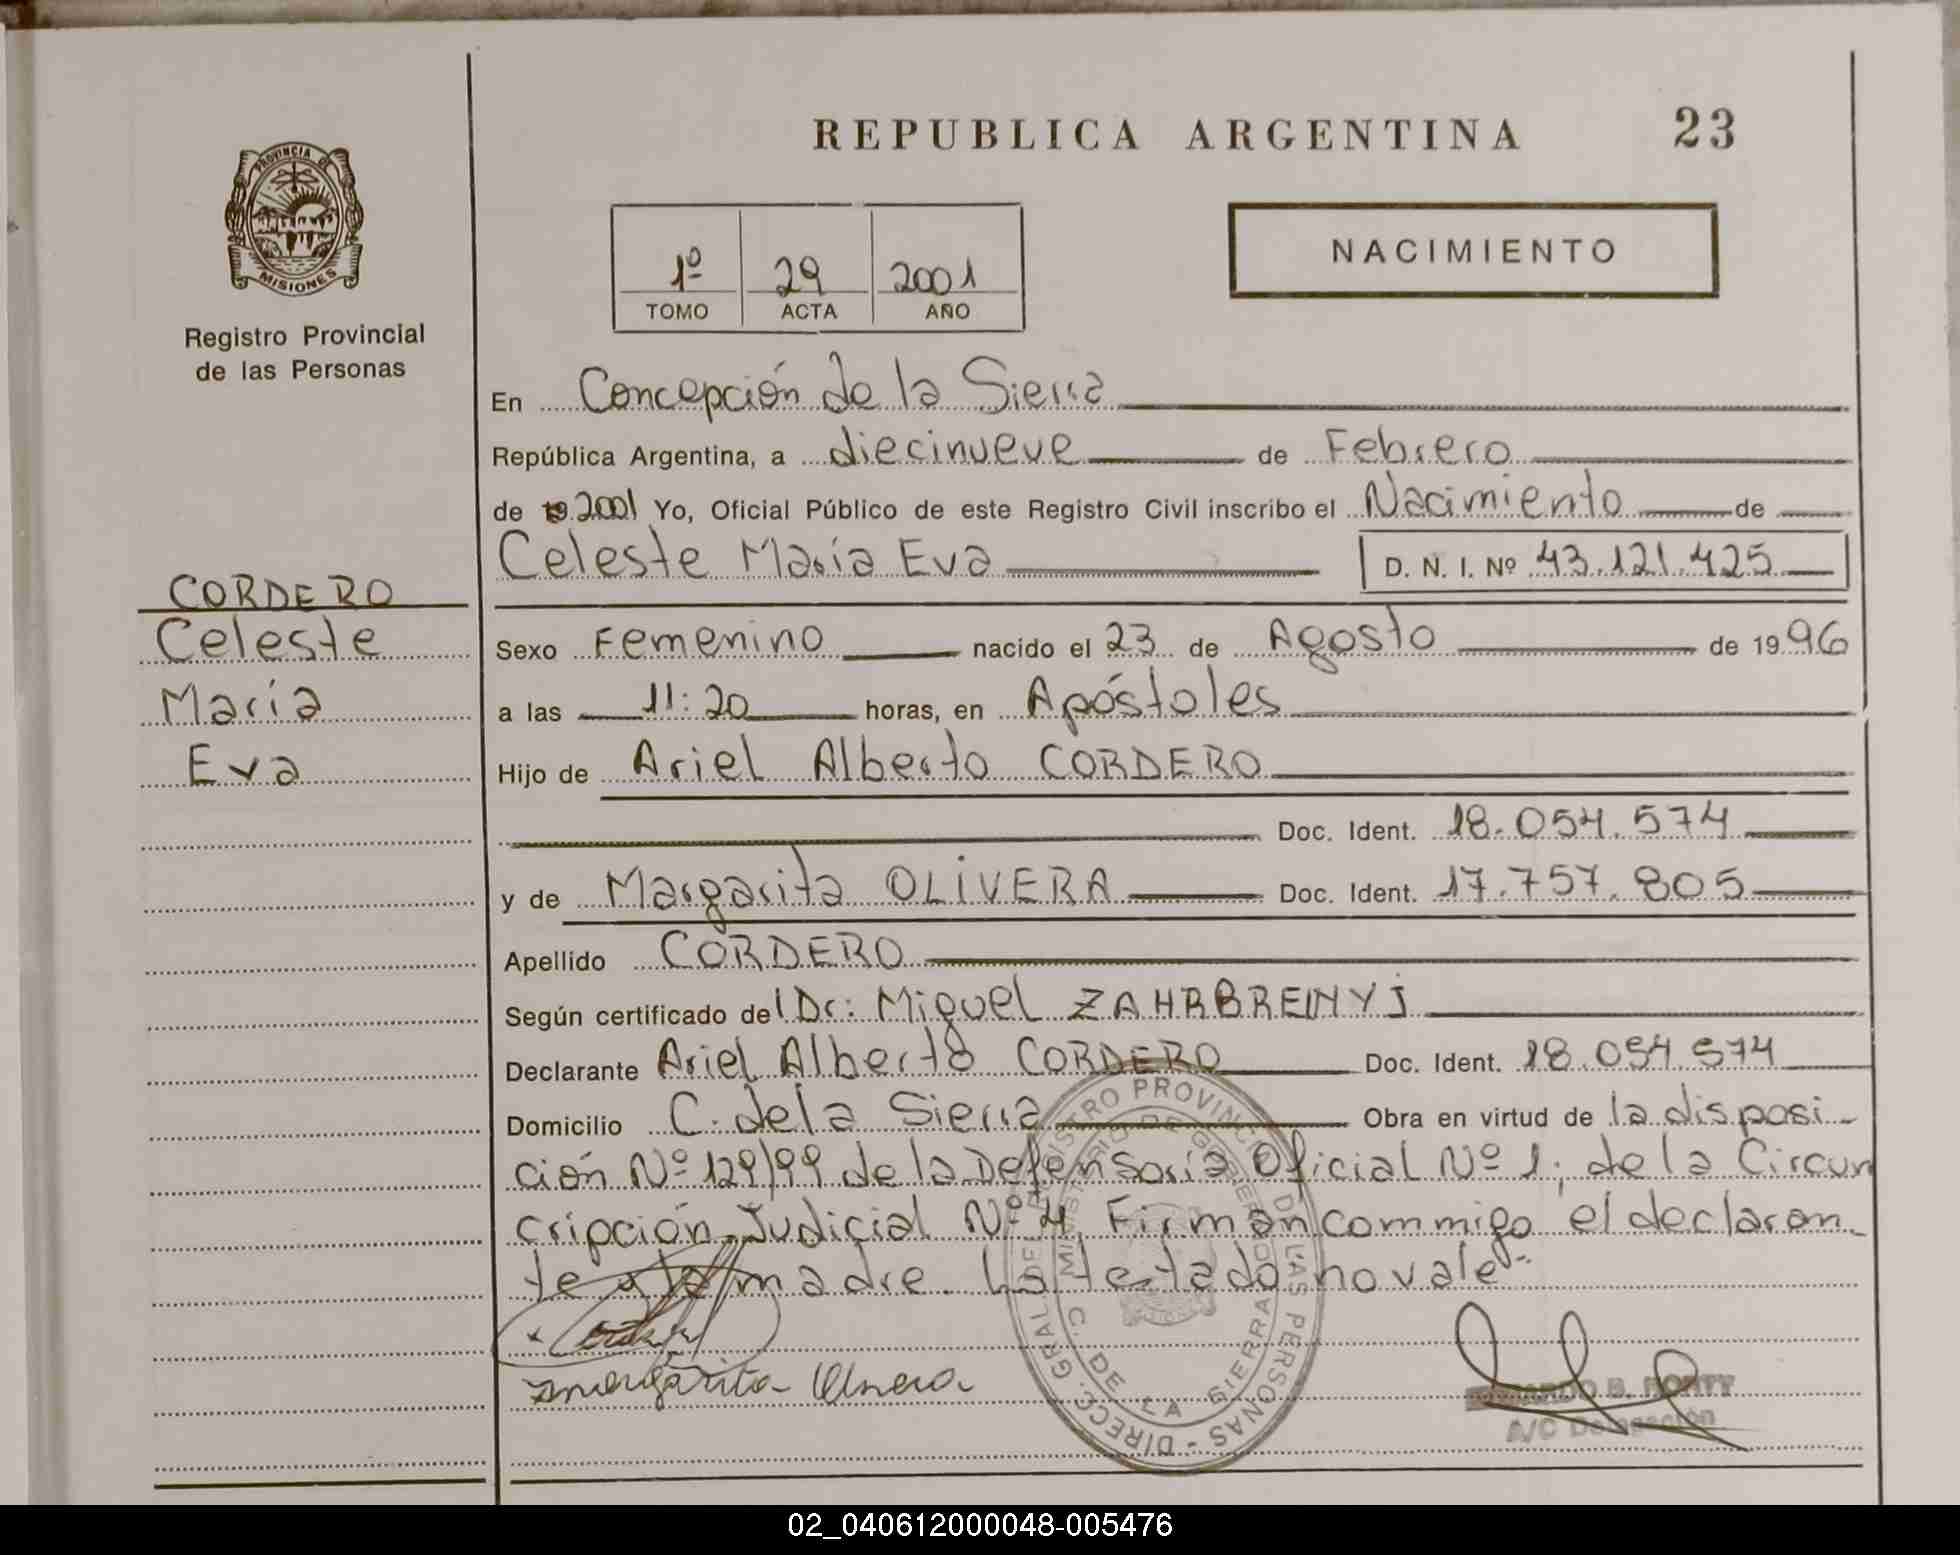 REPUBLICA ARGENTINA 23
PROVINCIA DE
MISIONES
Registro Provincial
de las Personas
1º 29 2001
TOMO ACTA AÑO
NACIMIENTO
En Concepción de la Sierra
República Argentina, a diecinueve de Febrero
de 19 2001 Yo, Oficial Público de este Registro Civil inscribo el Nacimiento de
Celeste María Eva D. N. I. Nº 43.121.425
CORDERO
Celeste
María
Eva
Sexo Femenino nacido el 23 de Agosto de 1996
a las 11:20 horas, en Apóstoles
Hijo de Ariel Alberto CORDERO
Doc. Ident. 18.054.574
y de Margarita OLIVERA Doc. Ident. 17.757.805
Apellido CORDERO
Según certificado del Dr: Miguel
Declarante Ariel Alberto CORDERO Doc. Ident. 18.054.574
Domicilio C. de la Sierra Obra en virtud de la disposi-
ción Nº 129/99 de la Defensoría Oficial Nº 1, de la Circun
cripción Judicial Nº 4. Firman conmmigo el declaran-
te y la madre. Lo testado no vale-
Margarita Olivera
DIRECC. GRAL DEL REGISTRO PROVINCIAL DE LAS PERSONAS
MINISTERIO DE GOBIERNO
C. DE LA SIERRA
A/C Delegación
02_040612000048-005476